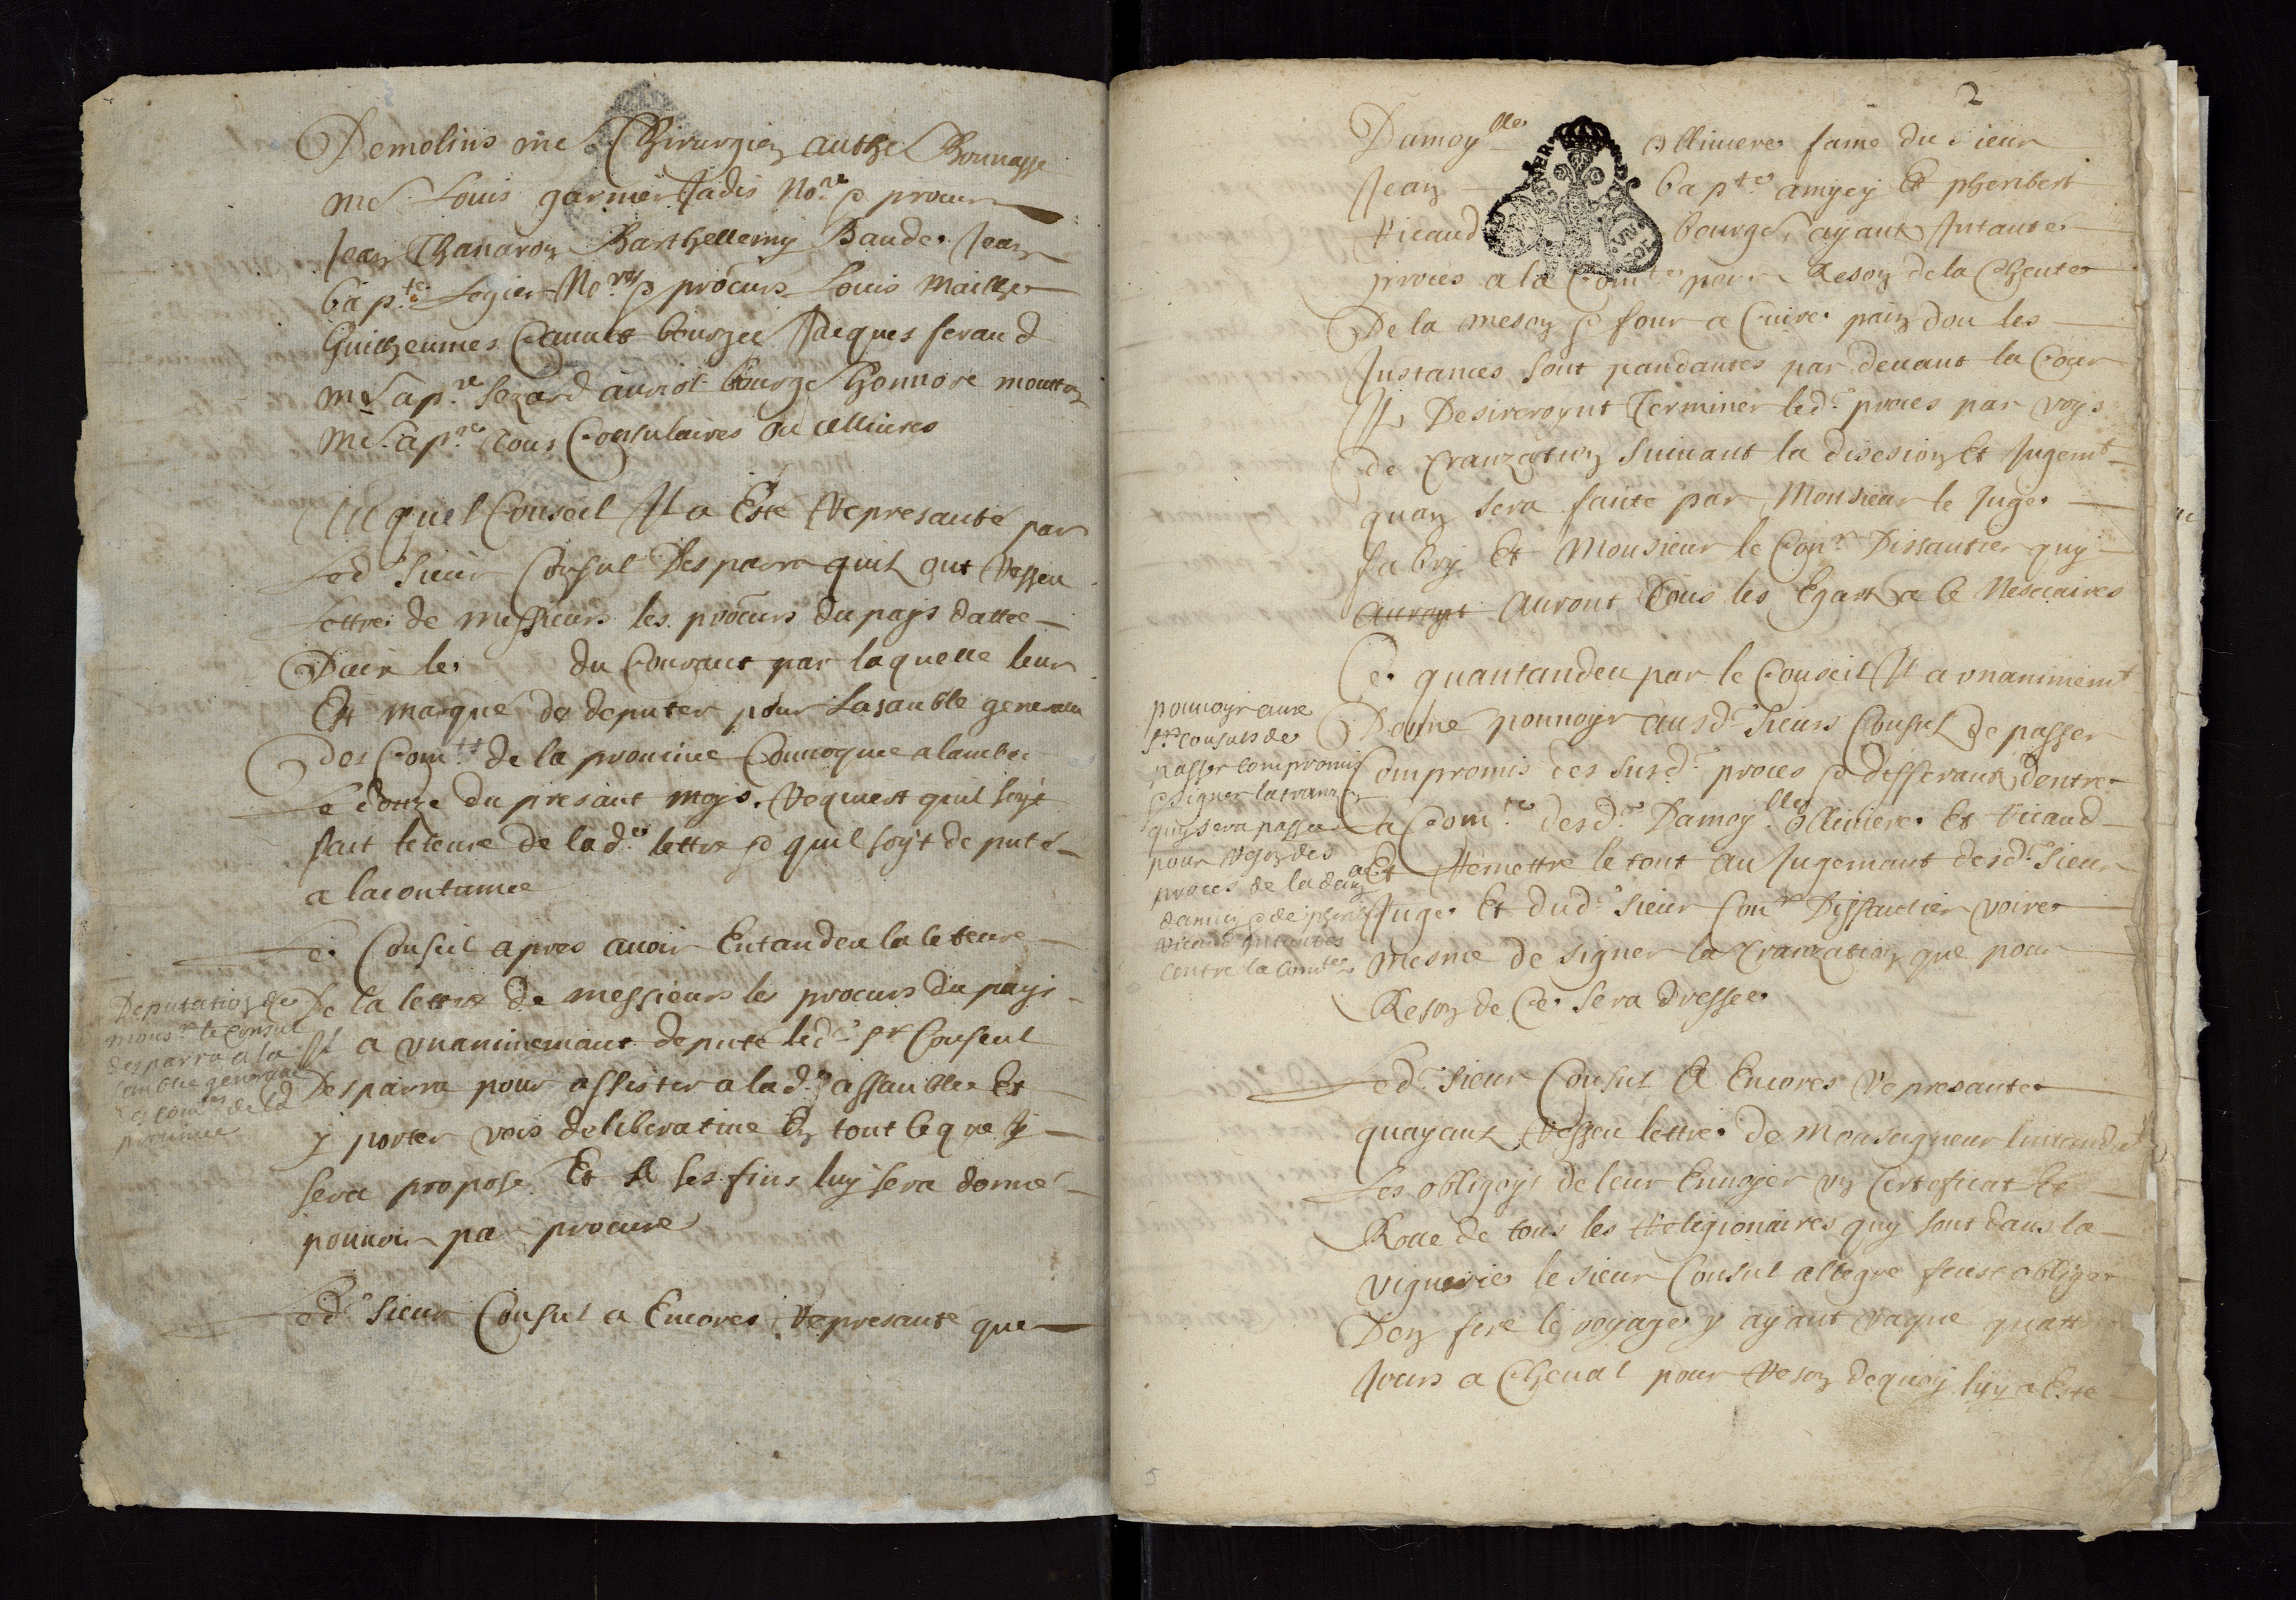 Demolins me Chirurgien anthe Bonnasse
me Louis garnier Jadis No.re & procur
Jean Chanaron Barthellemy Baude Jean
bap.te Legier No.re & procurs Louis mailhe
Guilheumes bourgee Jacques feraud
me ap.re auriol bourge honnore moutton
me ap.re tous Consulaires ou
Auquel Conseil Jl a Esté Represanté par
Led sieur Consul Desparra quil ont Resseu
Lettre de messieurs les procurs du pays dattee
Daix le du Courant par laquelle leur
Est marqué de deputer pour Lasanblé generalle
Des Com.tes de la province Convoquee a lambesc
Le douze du presant moys. Requiert quil soyt
fait leteure de lad.e lettre & quil soyt deputé
a lacoutumee
Le Conseil apres avoir Entandeu la leteure
De la lettre de messieurs les procurs du pays
Jl a vnanimemant deputé led. sr Conseul
Desparra pour assister a lad.e assanblee Et
y porter vois deliberative En tout ce que sy
sera proposé Et A ses fins luy sera donné
pouvoir par procure
Deputation de
mons.r le Consul
desparra a la
sanblee generalle
des com.tes de la
province
Led. sieur Consul a Encores Represanté que
2
Damoy.lle Olliviere fame du sieur
Jean bap.te amyey Et pheribert
Ricaud bourge, ayant Jntanté
proces a la Com.té pour Reson de la Chente
De la meson & four a Cuire pain dou les
Jnstances sont pandantes par devant la Cour
Jls Desireroynt Terminer led. proces par voys
de Tranzation suivant la disesion Et Jugemt
quan sera faite par Monsieur le Juge
fabry Et Monsieur le Con.r Dissantier quy
auroynt auront tous les Egart a ce Nesecaires
Ce quantandeu par le Conseil Jl a vnanimemt
Donne pouvoyr ausd. sieurs Consul de passer
Compromis des susd. proces & differans dentre
la Com.té desd. Damoy.lle Ollivière Et Ricaud
Et Remettre le tout au Jugemant desd. sieur
Juge Et dud. sieur Con.r Dissantier voire
mesme de signer la Tranzation que pour
Reson de Ce sera dressee
pouvoyr aux
s.rs Consuls de
passer compromis
& signer la tranzon
quy sera passee
pour Reson des
proces de la dam.lle
damiey & de pheribert
Ricaud Jntantes
contre la comtée
Led. sieur Consul A Encores Represante
quayant Resseu lettre de Monseigneur lintandt
Les obligoyt de leur Envoyer vn Certeficat Et
Rolle de tous les Religionaires quy sont dans la
viguerie le sieur Consul allegre feust obliger
Den fere le voyage y ayant vaque quattre
Jours a Cheval pour Reson dequoy luy a Esté